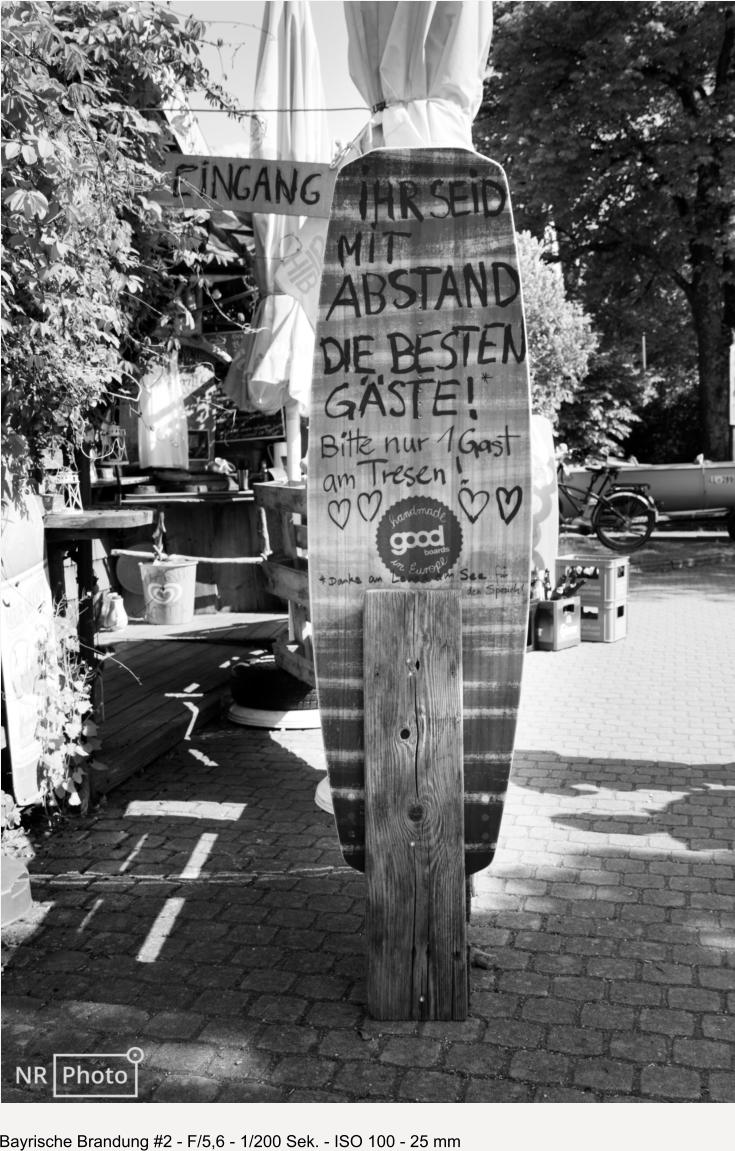 EINGANG
IHR SEID
MIT
ABSTAND
DIE BESTEN
GÄSTE!*
Bitte nur 1 Gast
am Tresen!
handmade
good
boards
in Europe
*Danke an
am See
den Spruch!
NR Photo
Bayrische Brandung #2 - F/5,6 - 1/200 Sek. - ISO 100 - 25 mm